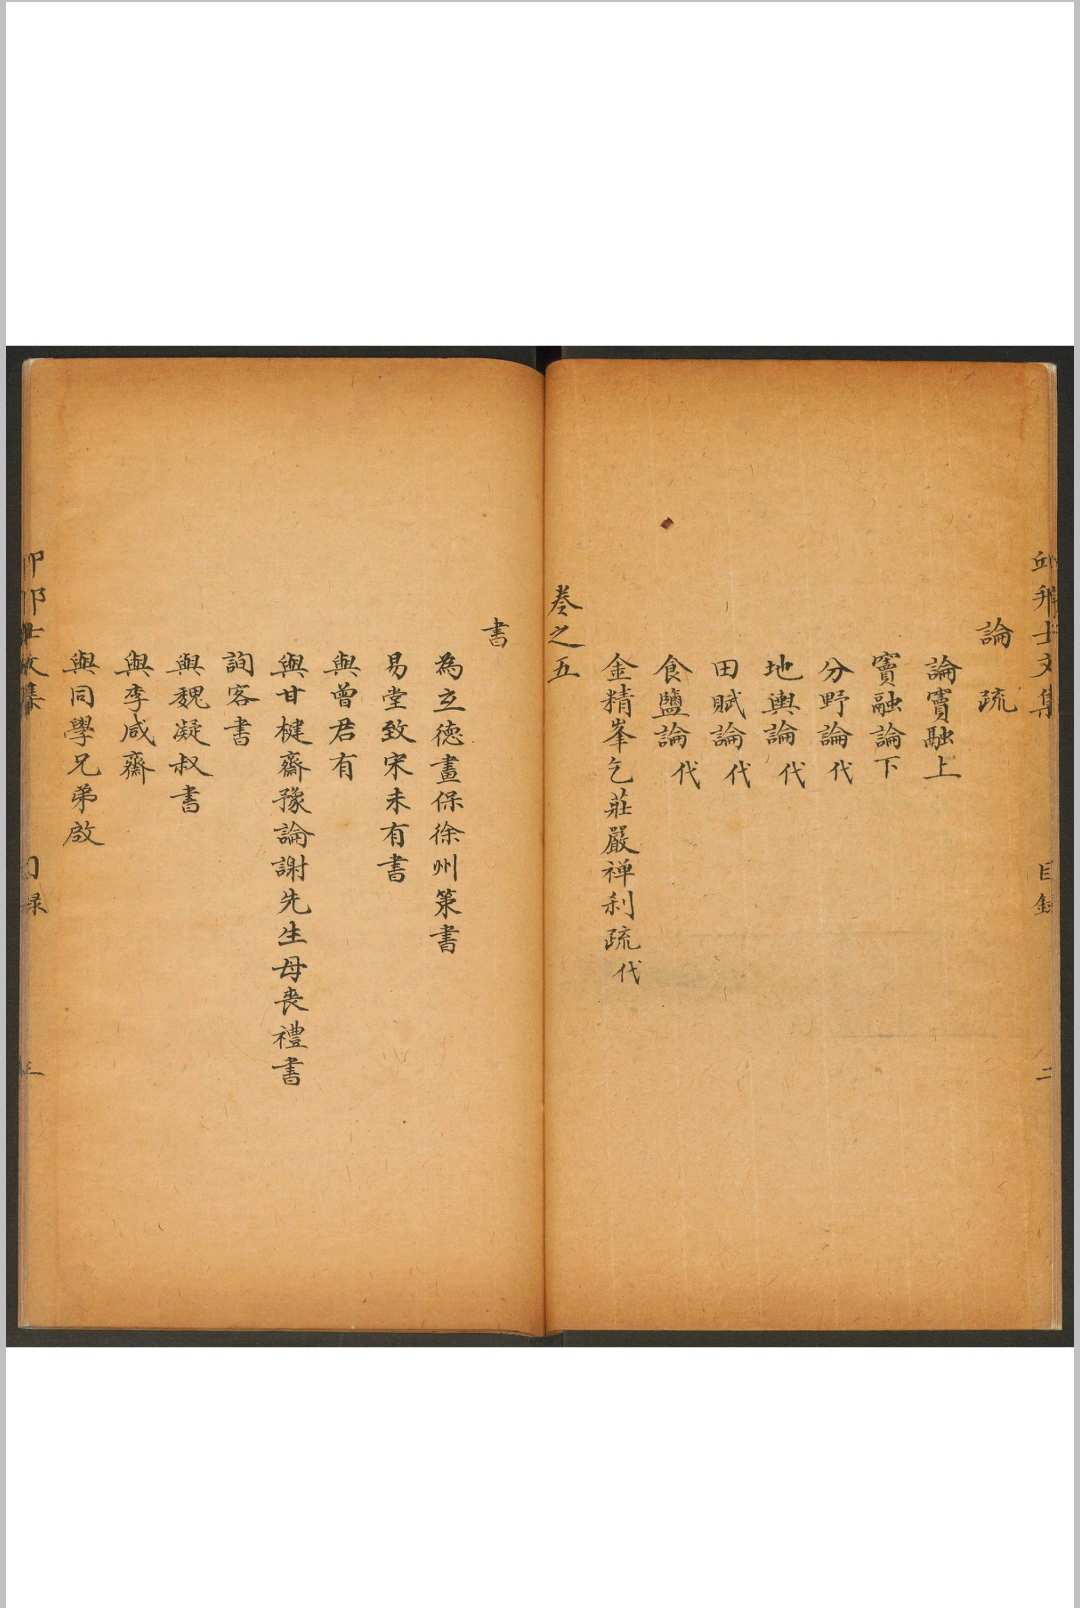 邱邦士文集 目錄 二
論 疏
論竇融上
竇融論下
分野論代
地輿論代
田賦論代
食鹽論代
金精峯乞莊嚴禅利疏代
卷之五
書
為立徳畫保徐州策書
易堂致宋未有書
與曾君有
與甘楗齋豫論謝先生母喪禮書
詢客書
與魏凝叔書
與李咸齋
與同學兄弟啟